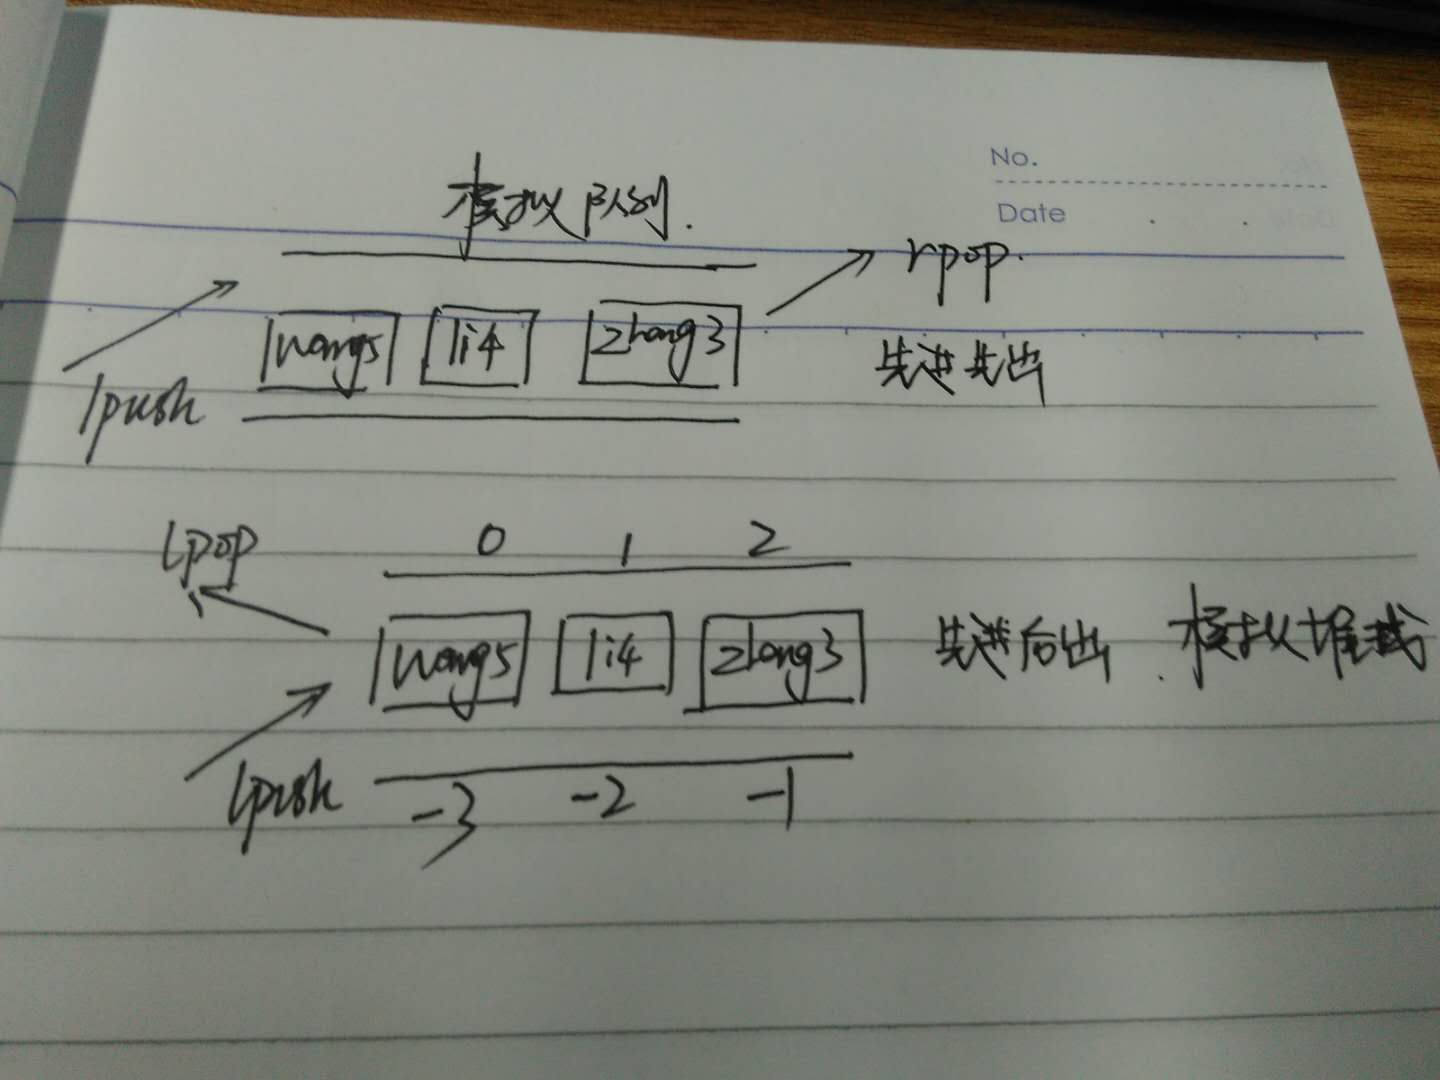 No.
Date
模拟队列.
rpop.
wang5 li4 zhang3
先进先出
lpush
lpop 0 1 2
wang5 li4 zhang3 先进后出. 模拟堆栈
lpush -3 -2 -1